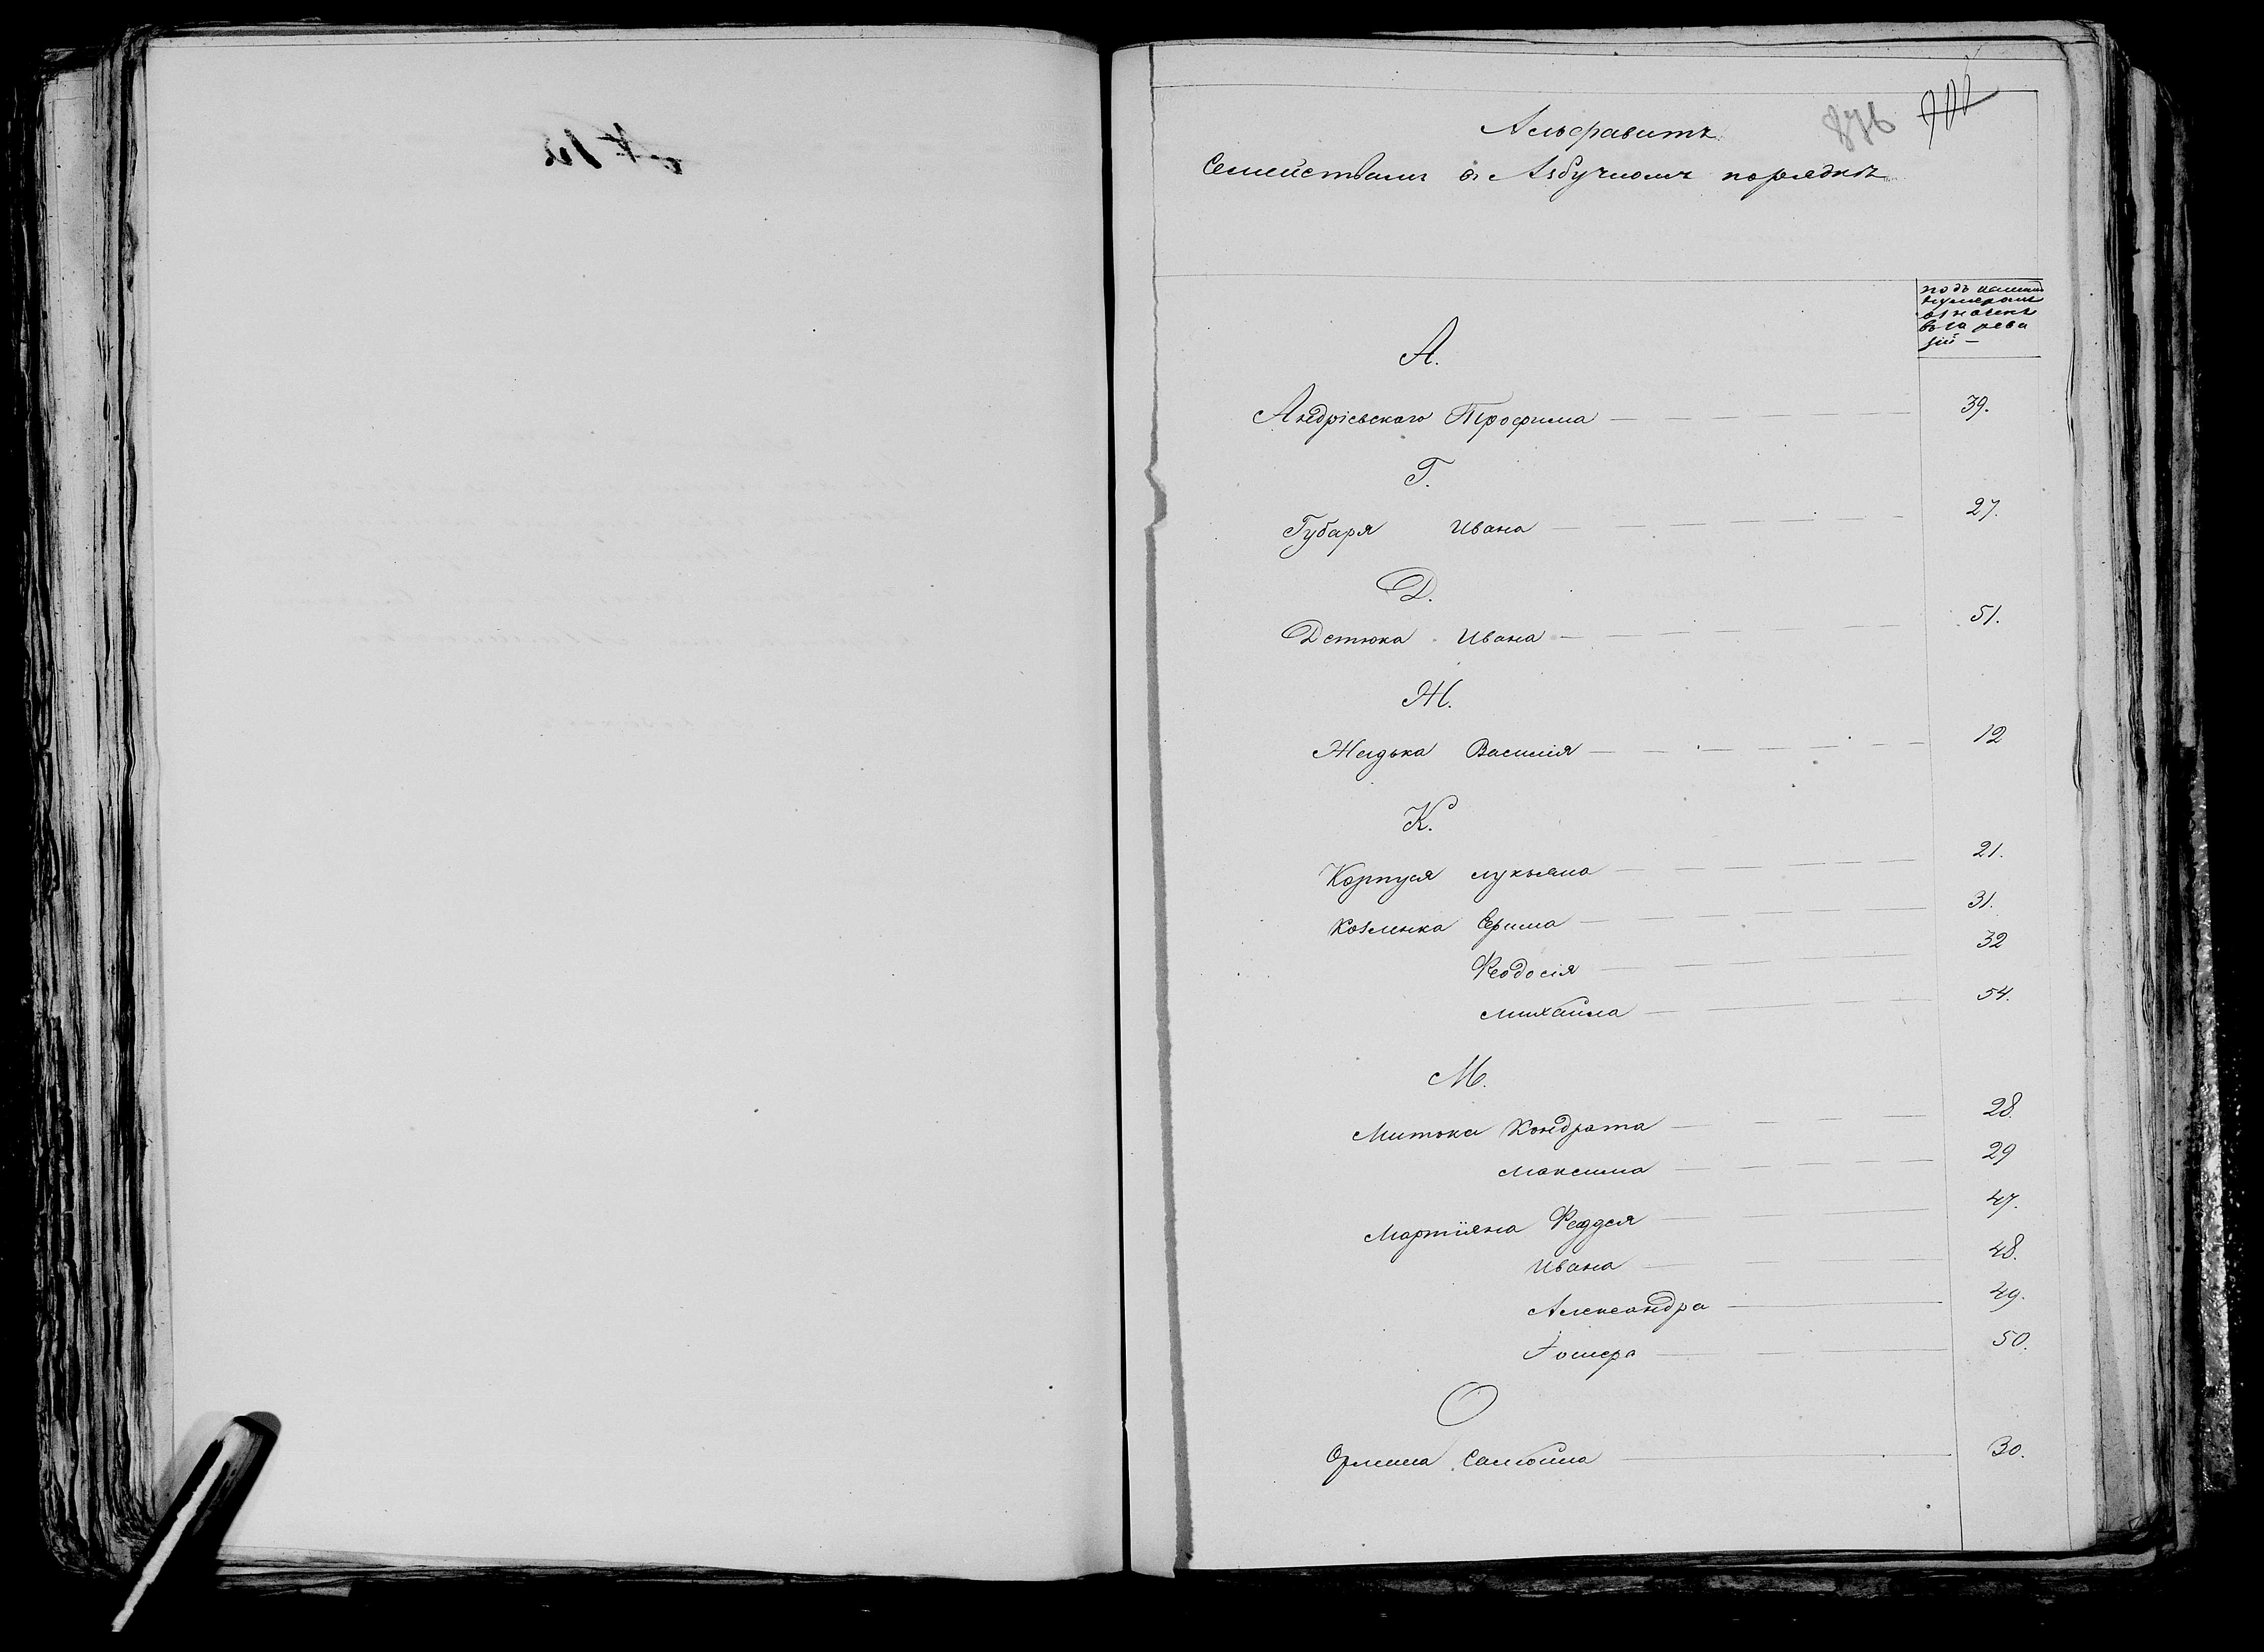 876
Альфавитъ
Семействамъ въ Азбучномъ порядкѣ
подъ какимъ
нумеромъ
въ 10 реви
зіи —
А.
Андріевского Трофима — 39.
Г.
Губаря Ивана — 27.
Д.
Детюка Ивана — 51.
Ж.
Василія — 12
К.
Карпуся Лукьяна — 21.
Козленка Ефима — 31.
Феодосія — 32
Михаила — 54.
М.
Митюка Кондрата — 28.
Максима — 29
Мартіяна Фаддея — 47.
Ивана — 48.
Александра — 49.
50.
О
Самоила — 30.